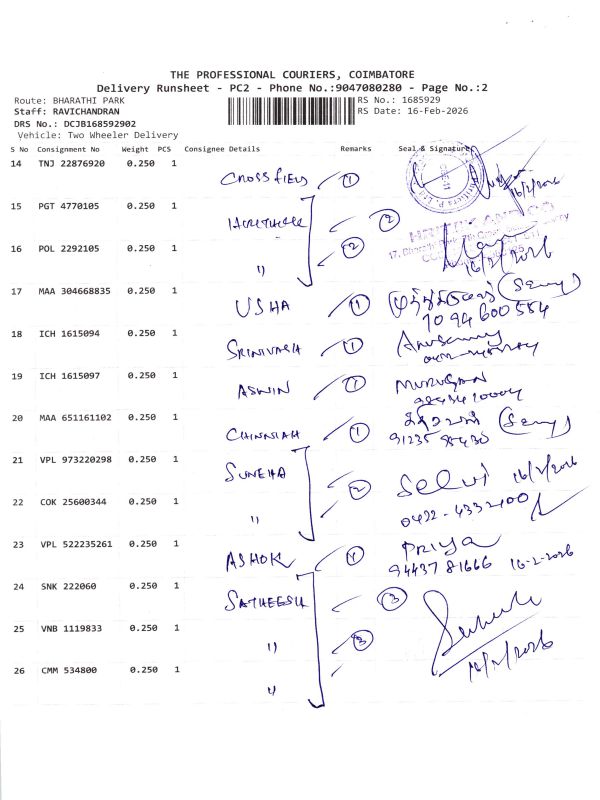 THE PROFESSIONAL COURIERS, COIMBATORE
Delivery Runsheet - PC2 - Phone No.:9047080280 - Page No.:2
Route: BHARATHI PARK
Staff: RAVICHANDRAN
DRS No.: DCJB168592902
Vehicle: Two Wheeler Delivery
RS No.: 1685929
RS Date: 16-Feb-2026
S No Consignment No Weight PCS Consignee Details Remarks Seal & Signature
14 TNJ 22876920 0.250 1 CROSSFIELD 1 16/2/2026
15 PGT 4770105 0.250 1 2
16 POL 2292105 0.250 1 " 2 16/2/2026
17 MAA 304668835 0.250 1 USHA 1
7094600584
18 ICH 1615094 0.250 1 SRINIVASA 1
19 ICH 1615097 0.250 1 ASWIN 1 MURUGAN
20 MAA 651161102 0.250 1 CHINNIAH 1
21 VPL 973220298 0.250 1 SUNEHA 2 Selvi 16/2/2026
22 COK 25600344 0.250 1 " 0422-4332100
23 VPL 522235261 0.250 1 ASHOK 1 PRIYA
94437 81666 16-2-2026
24 SNK 222060 0.250 1 SATHEESH 3
25 VNB 1119833 0.250 1 " 3
26 CMM 534800 0.250 1 "